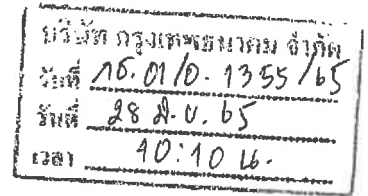 บริษัท กรุงเทพธนาคม จำกัด
วันที่ 1355/65
วันที่ 28 มิ.ย. 65
เวลา 10:10 น.